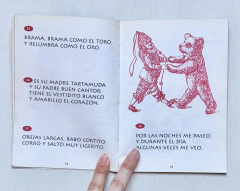 BRAMA, BRAMA COMO EL TORO,
Y RELUMBRA COMO EL ORO.
ES SU MADRE TARTAMUDA
Y SU PADRE BUEN CANTOR;
TIENE EL VESTIDITO BLANCO
Y AMARILLO EL CORAZÓN.
OREJAS LARGAS, RABO CORTITO,
CORRO Y SALTO MUY LIGERITO.
POR LAS NOCHES ME PASEO,
Y DURANTE EL DÍA
ALGUNAS VECES ME VEO.